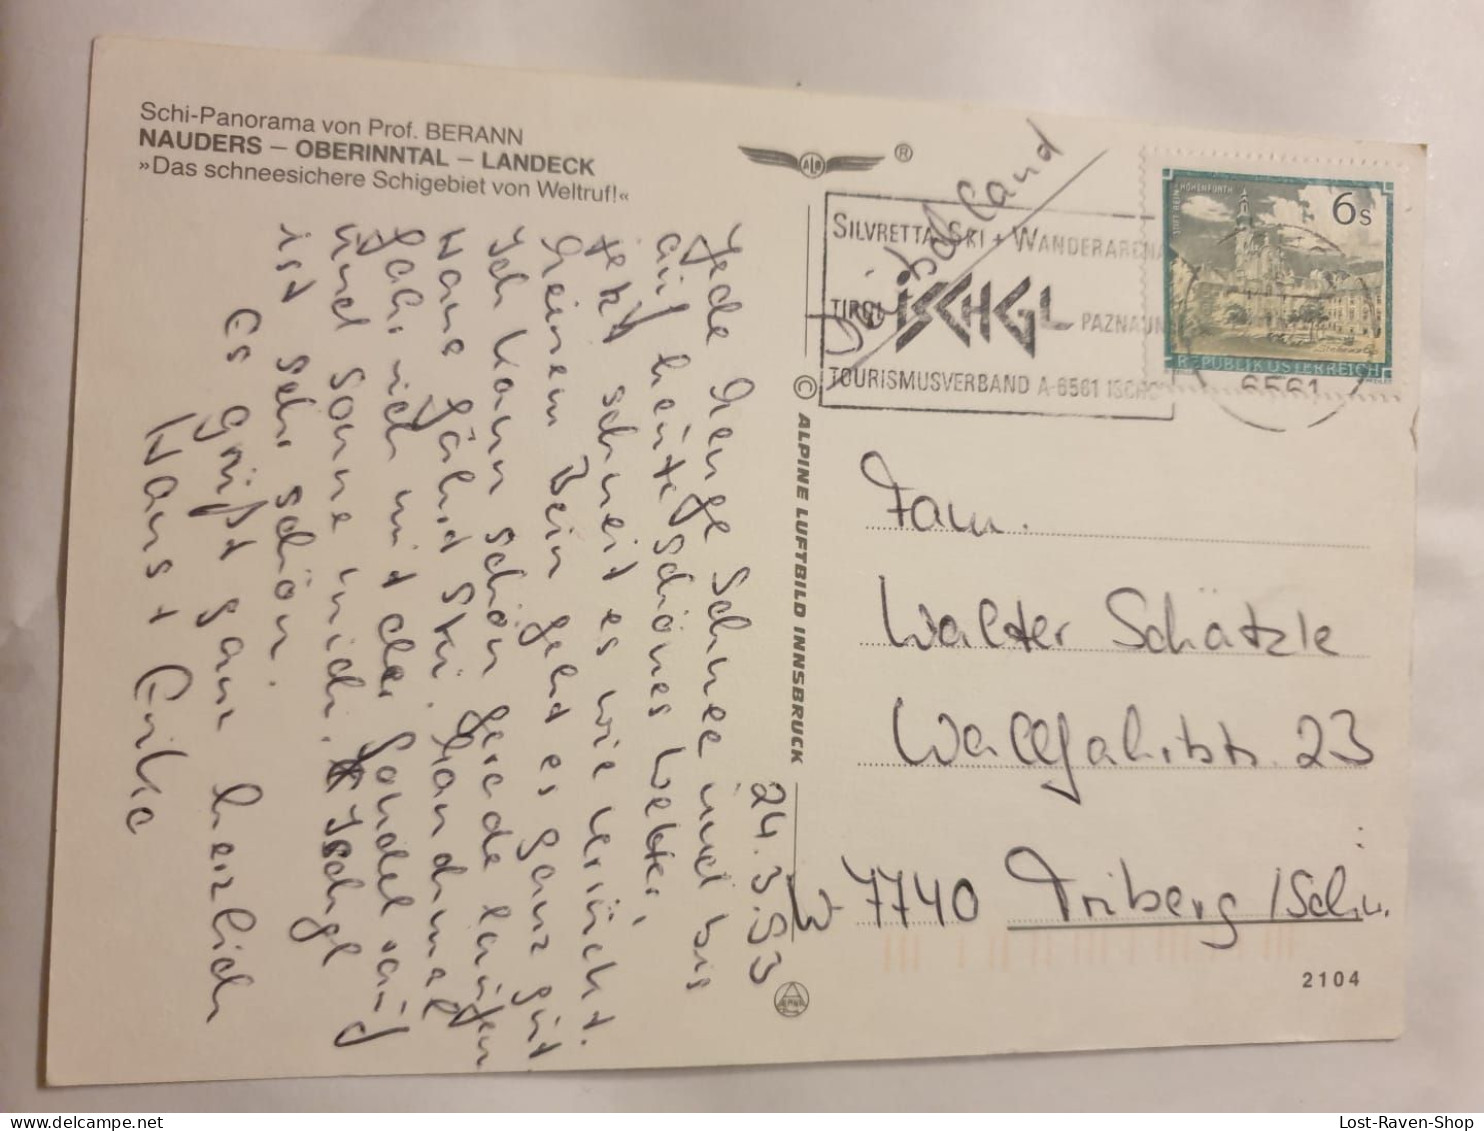 Schi-Panorama von Prof. BERANN
NAUDERS – OBERINNTAL – LANDECK
»Das schneesichere Schigebiet von Weltruf!«
ALB ®
24.3.93
Jede Menge Schnee und bis
auf heute schönes Wetter,
jetzt schneit es wie verrückt.
Meinem Bein geht es ganz gut
Ich kann schön gerade laufen
Hans fährt Ski. Manchmal
fahr ich mit der Gondel rauf
und sonne mich. Ischgl
ist sehr schön.
Es grüßt ganz herzlich
Hans + Erika
© ALPINE LUFTBILD INNSBRUCK
Deutschland
SILVRETTA SKI + WANDERARENA
TIROL ISCHGL PAZNAUN
TOURISMUSVERBAND A-6561 ISCHGL
6561
6s
STIFT REIN-HOHENFURTH
REPUBLIK ÖSTERREICH
Fam.
Walter Schätzle
Wallfahrtstr. 23
W-7740 Triberg /Schw.
2104
Lost-Raven-Shop